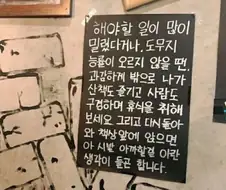 해야할 일이 많이
밀렸다거나, 도무지
능률이 오르지 않을 땐,
과감하게 밖으로 나가
산책도 즐기고 사람도
구경하며 휴식을 취해
보세요 그리고 다시 돌아
와 책상 앞에 앉으면
아 시발 아까할걸 이란
생각이 들곤 합니다.